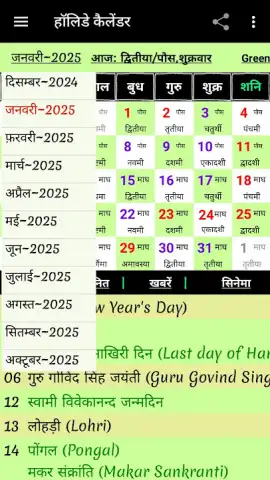 हॉलिडे कैलेंडर
जनवरी–2025 आज: द्वितीया/पौस,शुक्रवार Green
दिसम्बर–2024
जनवरी–2025
फ़रवरी–2025
मार्च–2025
अप्रैल–2025
मई–2025
जून–2025
जुलाई–2025
अगस्त–2025
सितम्बर–2025
अक्टूबर–2025
गल बुध गुरु शुक्र शनि
पौस 1 पौस 2 पौस 3 पौस 4 पौस
द्वितीया तृतीया चतुर्थी पंचमी
पौस 8 पौस 9 पौस 10 पौस 11 पौस
नवमी दशमी एकादशी द्वादशी
माघ 15 माघ 16 माघ 17 माघ 18 माघ
द्वितीया तृतीया चतुर्थी पंचमी
माघ 22 माघ 23 माघ 24 माघ 25 माघ
नवमी दशमी एकादशी द्वादशी
माघ 29 माघ 30 माघ 31 माघ 1 माघ
अमावस्या द्वितीया तृतीया तृतीया
खबरें सिनेमा
w Year's Day)
ाखिरी दिन (Last day of Han
06 गुरु गोविंद सिंह जयंती (Guru Govind Sing
12 स्वामी विवेकानन्द जन्मदिन
13 लोहड़ी (Lohri)
14 पोंगल (Pongal)
मकर संक्रांति (Makar Sankranti)